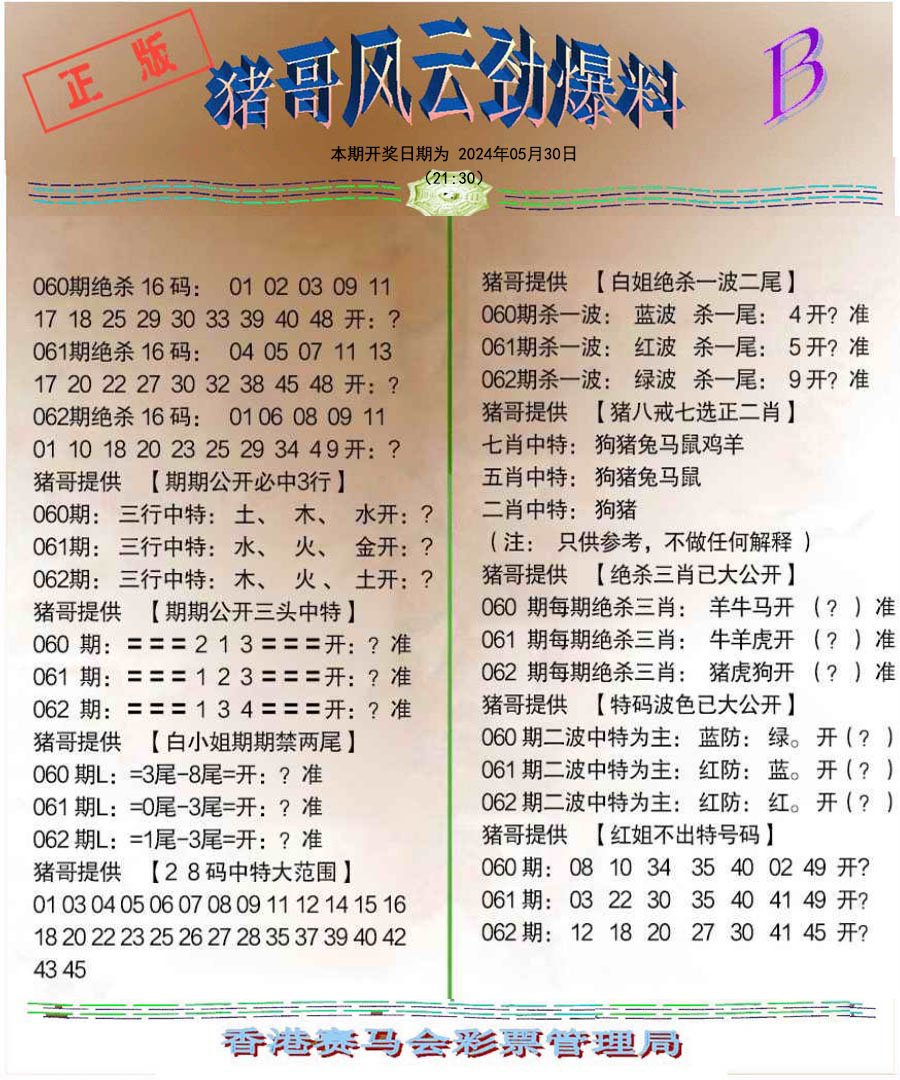 正版
猪哥风云劲爆料
B
本期开奖日期为 2024年05月30日
(21:30)
060期绝杀16码： 01 02 03 09 11
17 18 25 29 30 33 39 40 48 开：?
061期绝杀16码： 04 05 07 11 13
17 20 22 27 30 32 38 45 48 开：?
062期绝杀16码： 01 06 08 09 11
01 10 18 20 23 25 29 34 4 9 开：?
猪哥提供 【期期公开必中3行】
060期：三行中特：土、 木、 水开：?
061期：三行中特：水、 火、 金开：?
062期：三行中特：木、 火、 土开：?
猪哥提供 【期期公开三头中特】
060 期：＝＝＝2 1 3＝＝＝开：? 准
061 期：＝＝＝1 2 3＝＝＝开：? 准
062 期：＝＝＝1 3 4＝＝＝开：? 准
猪哥提供 【白小姐期期禁两尾】
060期L：=3尾-8尾=开：? 准
061期L：=0尾-3尾=开：? 准
062期L：=1尾-3尾=开：? 准
猪哥提供 【2 8码中特大范围】
01 03 04 05 06 07 08 09 11 12 14 15 16
18 20 22 23 25 26 27 28 35 37 39 40 42
43 45
猪哥提供 【白姐绝杀一波二尾】
060期杀一波： 蓝波 杀一尾： 4开? 准
061期杀一波： 红波 杀一尾： 5开? 准
062期杀一波： 绿波 杀一尾： 9开? 准
猪哥提供 【猪八戒七选正二肖】
七肖中特： 狗猪兔马鼠鸡羊
五肖中特： 狗猪兔马鼠
二肖中特： 狗猪
（注： 只供参考，不做任何解释）
猪哥提供 【绝杀三肖已大公开】
060 期每期绝杀三肖： 羊牛马开 （?）准
061 期每期绝杀三肖： 牛羊虎开 （?）准
062 期每期绝杀三肖： 猪虎狗开 （?）准
猪哥提供 【特码波色已大公开】
060期二波中特为主：蓝防：绿。开（?）
061期二波中特为主：红防：蓝。开（?）
062期二波中特为主：红防：红。开（?）
猪哥提供 【红姐不出特号码】
060期： 08 10 34 35 40 02 49 开?
061期： 03 22 30 35 40 41 49 开?
062期： 12 18 20 27 30 41 45 开?
香港赛马会彩票管理局